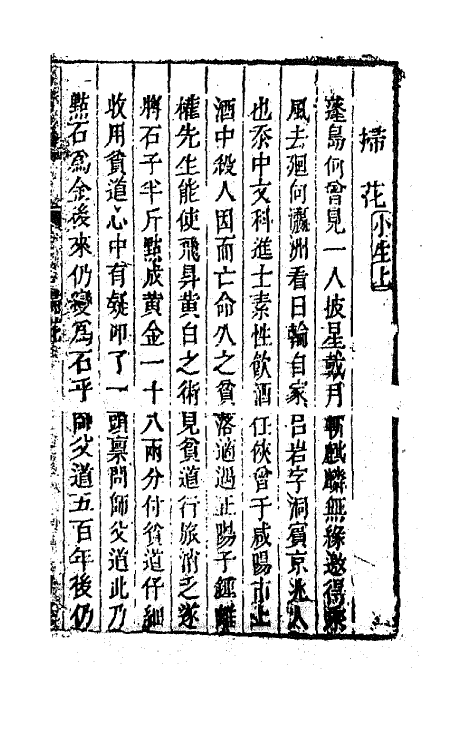 掃花 小生上
蓬島何曾見一人披星戴月斬麒麟無緣邀得乘
風去廻向瀛洲看日輪自家呂岩字洞賓京兆人
也忝中文科進士素性飲酒任俠曾于咸陽市上
酒中殺人因而亡命久之貧落道遇正陽子鍾離
權先生能使飛昇黃白之術見貧道行旅消乏遂
將石子半斤點成黃金一十八兩分付貧道仔細
收用貧道心中有疑叩了一頭稟問師父道此乃
點石爲金後來仍變爲石乎師父道五百年後仍